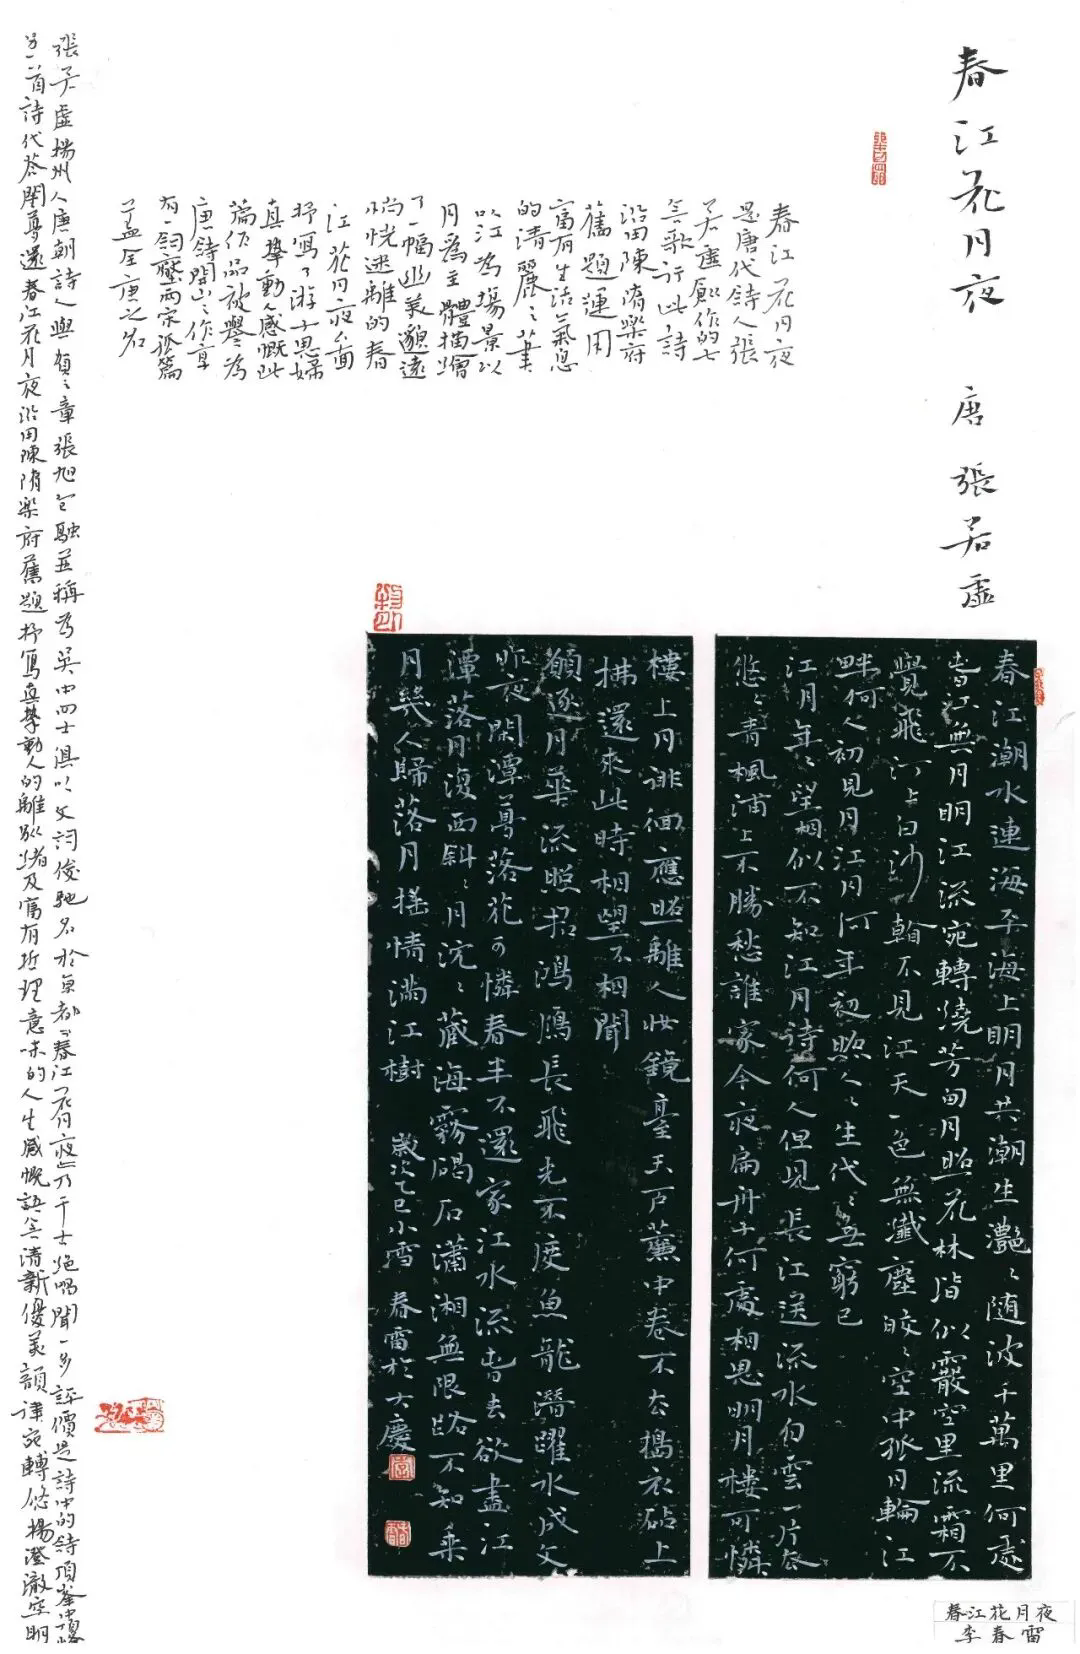 春江花月夜 唐 張若虛
春江花月夜
是唐代詩人張
若虛所作的七
言歌行此詩
沿用陳隋樂府
舊題運用
富有生活氣息
的清麗之筆
以江為場景以
月為主體描繪
了一幅幽美邈遠
惝恍迷離的春
江花月夜畫面
抒寫了游子思婦
真摯動人感慨此
篇作品被譽為
唐詩開山之作享
有一詞壓兩宋孤篇
蓋全唐之名
春江潮水連海平海上明月共潮生灩〻随波千萬里何處
春江無月明江流宛轉繞芳甸月照花林皆似霰空里流霜不
覺飛汀上白沙看不見江天一色無纖塵皎〻空中孤月輪江
畔何人初見月江月何年初照人〻生代〻無窮已
江月年〻望相似不知江月待何人但見長江送流水白雲一片去
悠〻青楓浦上不勝愁誰家今夜扁舟子何處相思明月樓可憐
樓上月徘徊應照離人妝鏡臺玉戶簾中卷不去搗衣砧上
拂還來此時相望不相聞
願逐月華流照君鴻雁長飛光不度魚龍潛躍水成文
昨夜閑潭夢落花可憐春半不還家江水流春去欲盡江
潭落月復西斜〻月沉〻藏海霧碣石瀟湘無限路不知乘
月幾人歸落月搖情滿江樹 歲次乙巳小雪 春雷於大慶
張若虛揚州人唐朝詩人與賀之章張旭包融並稱為吳中四士俱以文詞俊馳名於京都春江花月夜乃千古絕唱聞一多評價是詩中的詩頂峰中的頂峰
另一首詩代答閨夢還春江花月夜沿用陳隋樂府舊題抒寫真摯動人的離別情緒及富有哲理意味的人生感慨語言清新優美韻律宛轉悠揚澄澈空明
春江花月夜
李春雷